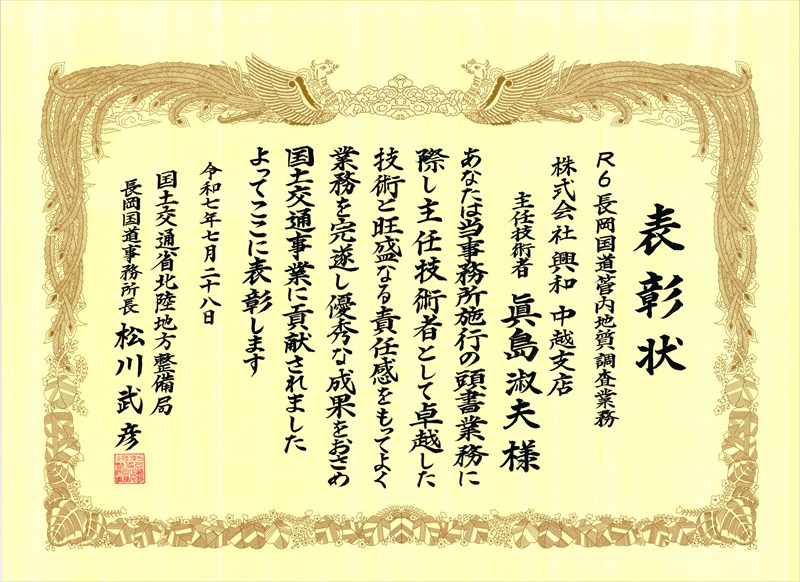 表彰状
R6長岡国道管内地質調査業務
株式会社 興和 中越支店
主任技術者 眞島淑夫 様
あなたは当事務所施行の頭書業務に
際し主任技術者として卓越した
技術と旺盛なる責任感をもってよく
業務を完遂し優秀な成果をおさめ
国土交通事業に貢献されました
よってここに表彰します
令和七年七月二十八日
国土交通省北陸地方整備局
長岡国道事務所長 松川武彦